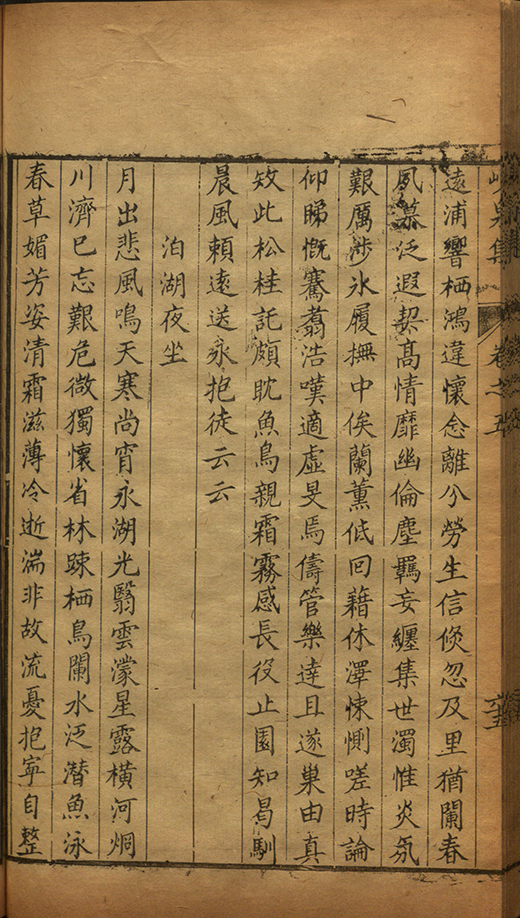 峴泉集　卷之五
遠浦響栖鴻違懷念離分勞生信倐忽及里猶闌春
風慕泛遐契髙情靡幽倫塵羈妄纏集世濁惟炎氛
艱厲涉氷履撫中俟蘭薰低回藉休澤悚惻嗟時論
仰睇慨騫翥浩嘆適虛旻焉儔管樂達且遂巢由真
攷此松桂託頗耽魚鳥親霜霧感長役止園知曷馴
晨風頼遠送永抱徒云云
泊湖夜坐
月出悲風鳴天寒尚宵永湖光翳雲濛星露橫河炯
川濟已忘艱危微獨懷省林踈栖鳥闌水泛潛魚泳
春草媚芳姿清霜滋薄冷逝湍非故流憂抱寧自整